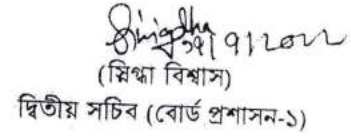 (স্নিগ্ধা বিশ্বাস)
দ্বিতীয় সচিব (বোর্ড প্রশাসন-১)